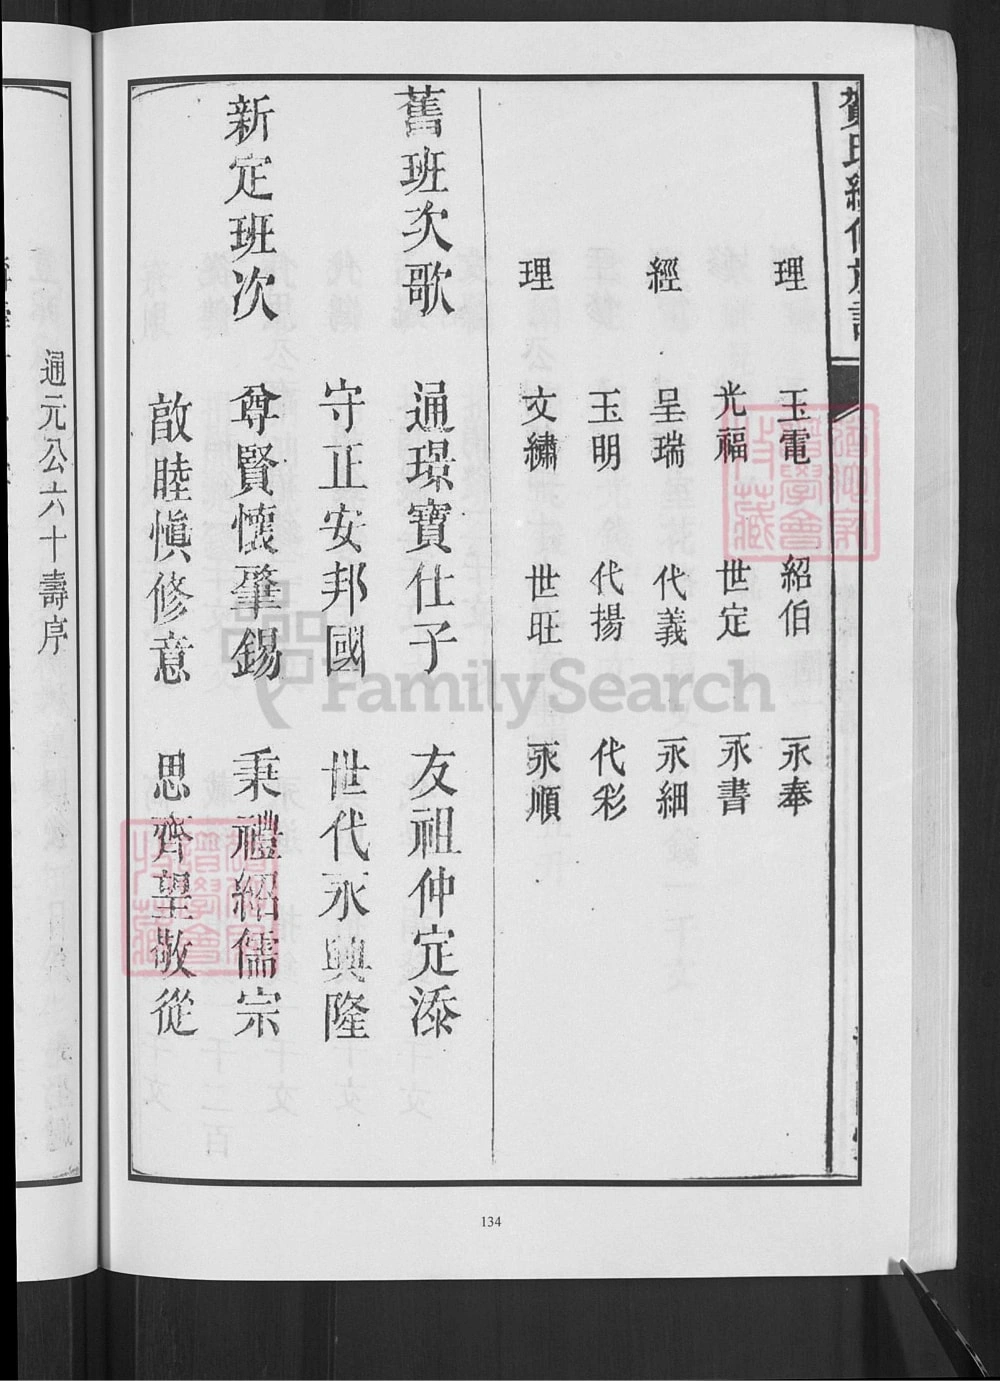 理 玉電 紹伯 永奉
光福 世定 永書
經 呈瑞 代義 永細
玉明 代揚 代彩
理 文繡 世旺 永順
舊班次歌 通璟寶仕子 友祖仲定添
守正安邦國 世代永興隆
新定班次 尊賢懷肇錫 秉禮紹儒宗
敦睦慎修意 思齊望敬從
通元公六十壽序
134
FamilySearch